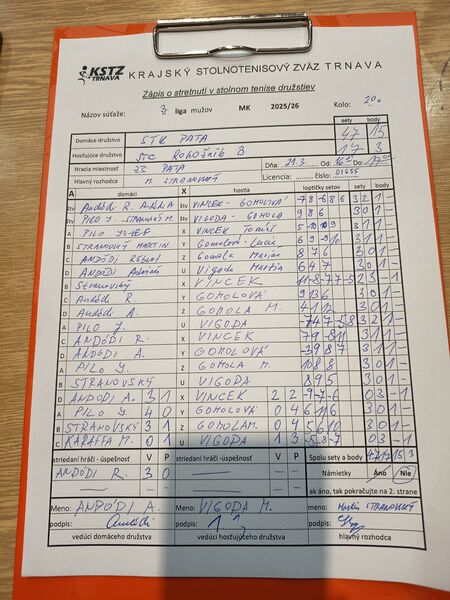 KSTZ TRNAVA KRAJSKÝ STOLNOTENISOVÝ ZVÄZ TRNAVA
Zápis o stretnutí v stolnom tenise družstiev
Názov súťaže: 3. liga mužov MK 2025/26 Kolo: 20.
sety body
Domáce družstvo STK PATA 47 15
Hosťujúce družstvo STC ROHOŽNÍK B 17 3
Hracia miestnosť ZŠ PATA Dňa: 21.3. Od: Do: 17:00
Hlavný rozhodca M. STRANOVSKÝ Licencia: číslo: 01655
A domáci X hostia loptičky setov sety body
štv ANDÓDI R. VINCEK - GOMOLOVÁ -7 8 -6 8 6 3 2 1 -
štv PILO J. STRANOVSKÝ M. VIGODA - GOMOLA 9 8 6 3 0 1 -
A PILO JOZEF X VINCEK Tomáš 3 1 1 -
B STRANOVSKÝ MARTIN Y Gomolová - 3 1 1 -
C ANDÓDI Róbert Z Gomola Marián 8 7 6 3 0 1 -
D ANDÓDI Adrian U Vigoda Martin 6 4 7 3 0 1 -
B Stranovský X VINCEK
C Andódi R. Y GOMOLOVÁ 9 13 6 3 0 1 -
D Andódi A. Z GOMOLA M. 3 0 1 -
A PILO J. U VIGODA -7 4 7 -5 8 3 2 1 -
C ANDÓDI R. X VINCEK 7 9 -8 11 3 1 1 -
D ANDÓDI A. Y GOMOLOVÁ -3 9 8 7 3 1 1 -
A PILO J. Z GOMOLA M. 10 8 8 3 0 1 -
B STRANOVSKÝ U VIGODA 8 9 5 3 0 1 -
D ANDÓDI A. 3 1 X VINCEK 2 2 -9 -7 -6 0 3 - 1
A PILO J. 4 0 Y GOMOLOVÁ 0 4 6 11 6 3 0 1 -
B STRANOVSKÝ 3 1 Z GOMOLA M. 0 4 5 6 10 3 0 1 -
C KARAFFA M. 0 1 U VIGODA 1 3 -5 -8 -7 0 3 - 1
striedaní hráči - úspešnosť V P striedaní hráči - úspešnosť V P Spolu sety a body 47 17 15 3
ANDÓDI R. 3 0 Námietky Áno Nie
ak áno, tak pokračujte na 2. strane
Meno: ANDÓDI A. Meno: VIGODA M. meno: Martin STRANOVSKÝ
podpis: podpis: podpis:
vedúci domáceho družstva vedúci hosťujúceho družstva hlavný rozhodca